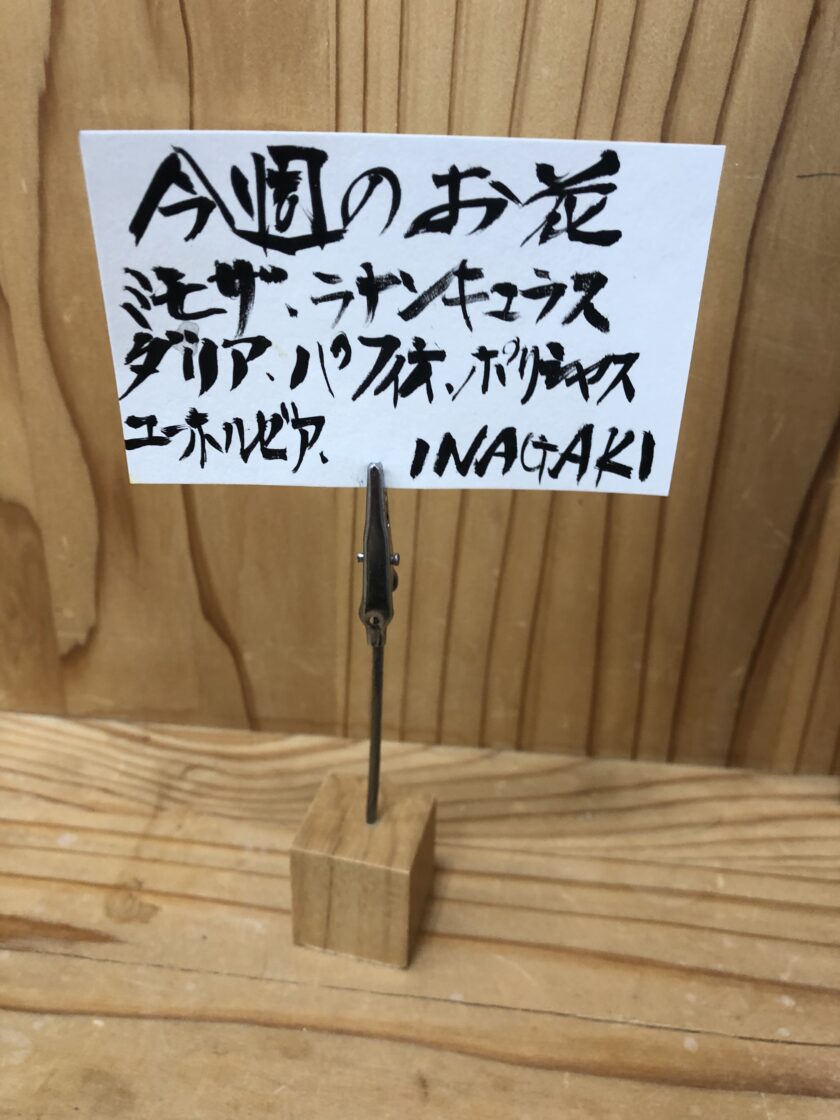 今週のお花
ミモザ、ラナンキュラス
ダリア、パフィオ、ポリシャス
ユーホルビア、 INAGAKI